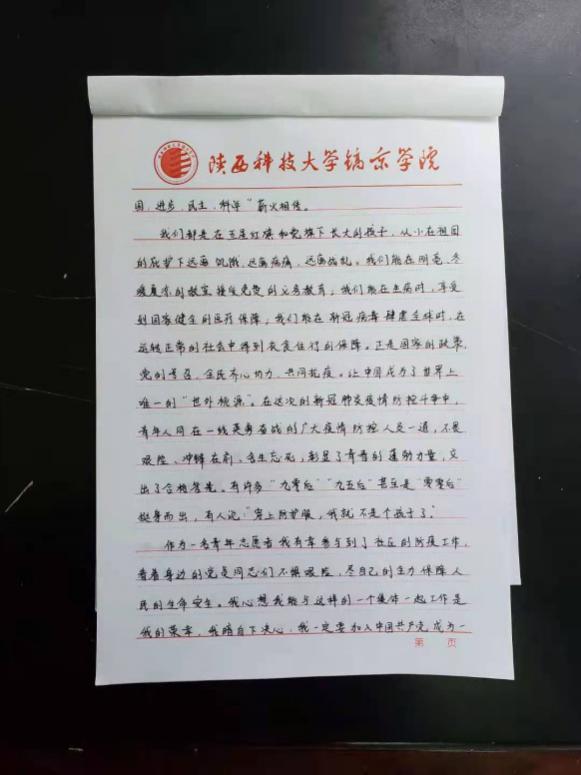 陕西科技大学镐京学院
国、进步、民主、科学"薪火相传。
我们都是在五星红旗和党旗下长大的孩子,从小在祖国
的庇护下远离饥饿、远离病痛、远离战乱。我们能在明亮、冬
暖夏凉的教室接受免费的义务教育;我们能在患病时,享受
到国家健全的医疗保障;我们能在新冠病毒肆虐全球时,在
运转正常的社会中得到衣食住行的保障。正是国家的政策,
党的号召,全民齐心协力,共同抗疫。让中国成为了世界上
唯一的"世外桃源"。在这次的新冠肺炎疫情防控斗争中,
青年人同在一线英勇奋战的广大疫情防控人员一道,不畏
艰险、冲锋在前、舍生忘死,彰显了青春的蓬勃力量,交
出了合格答卷。有许多"九零后""九五后"甚至是"零零后"
挺身而出,有人说:"穿上防护服,我就不是个孩子了。"
作为一名青年志愿者我有幸参与到了社区的防疫工作,
看着身边的党员同志们不惧艰险,尽自己的全力保障人
民的生命安全。我心想我能与这样的一个集体一起工作是
我的荣幸,我暗自下决心,我一定要加入中国共产党,成为一
第 页